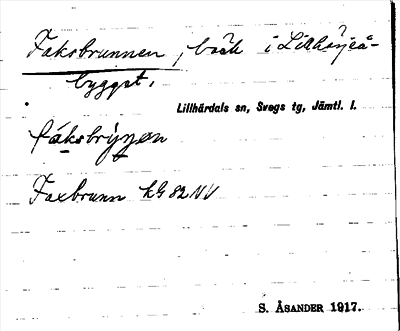 Faksbrunnen, bäck i Lillhärjeå-
bygget,
Lillhärdals sn, Svegs tg, Jämtl. l.
fáksbrỳnen
Faxbrunn kG 82 NV
S. ÅSANDER 1917.